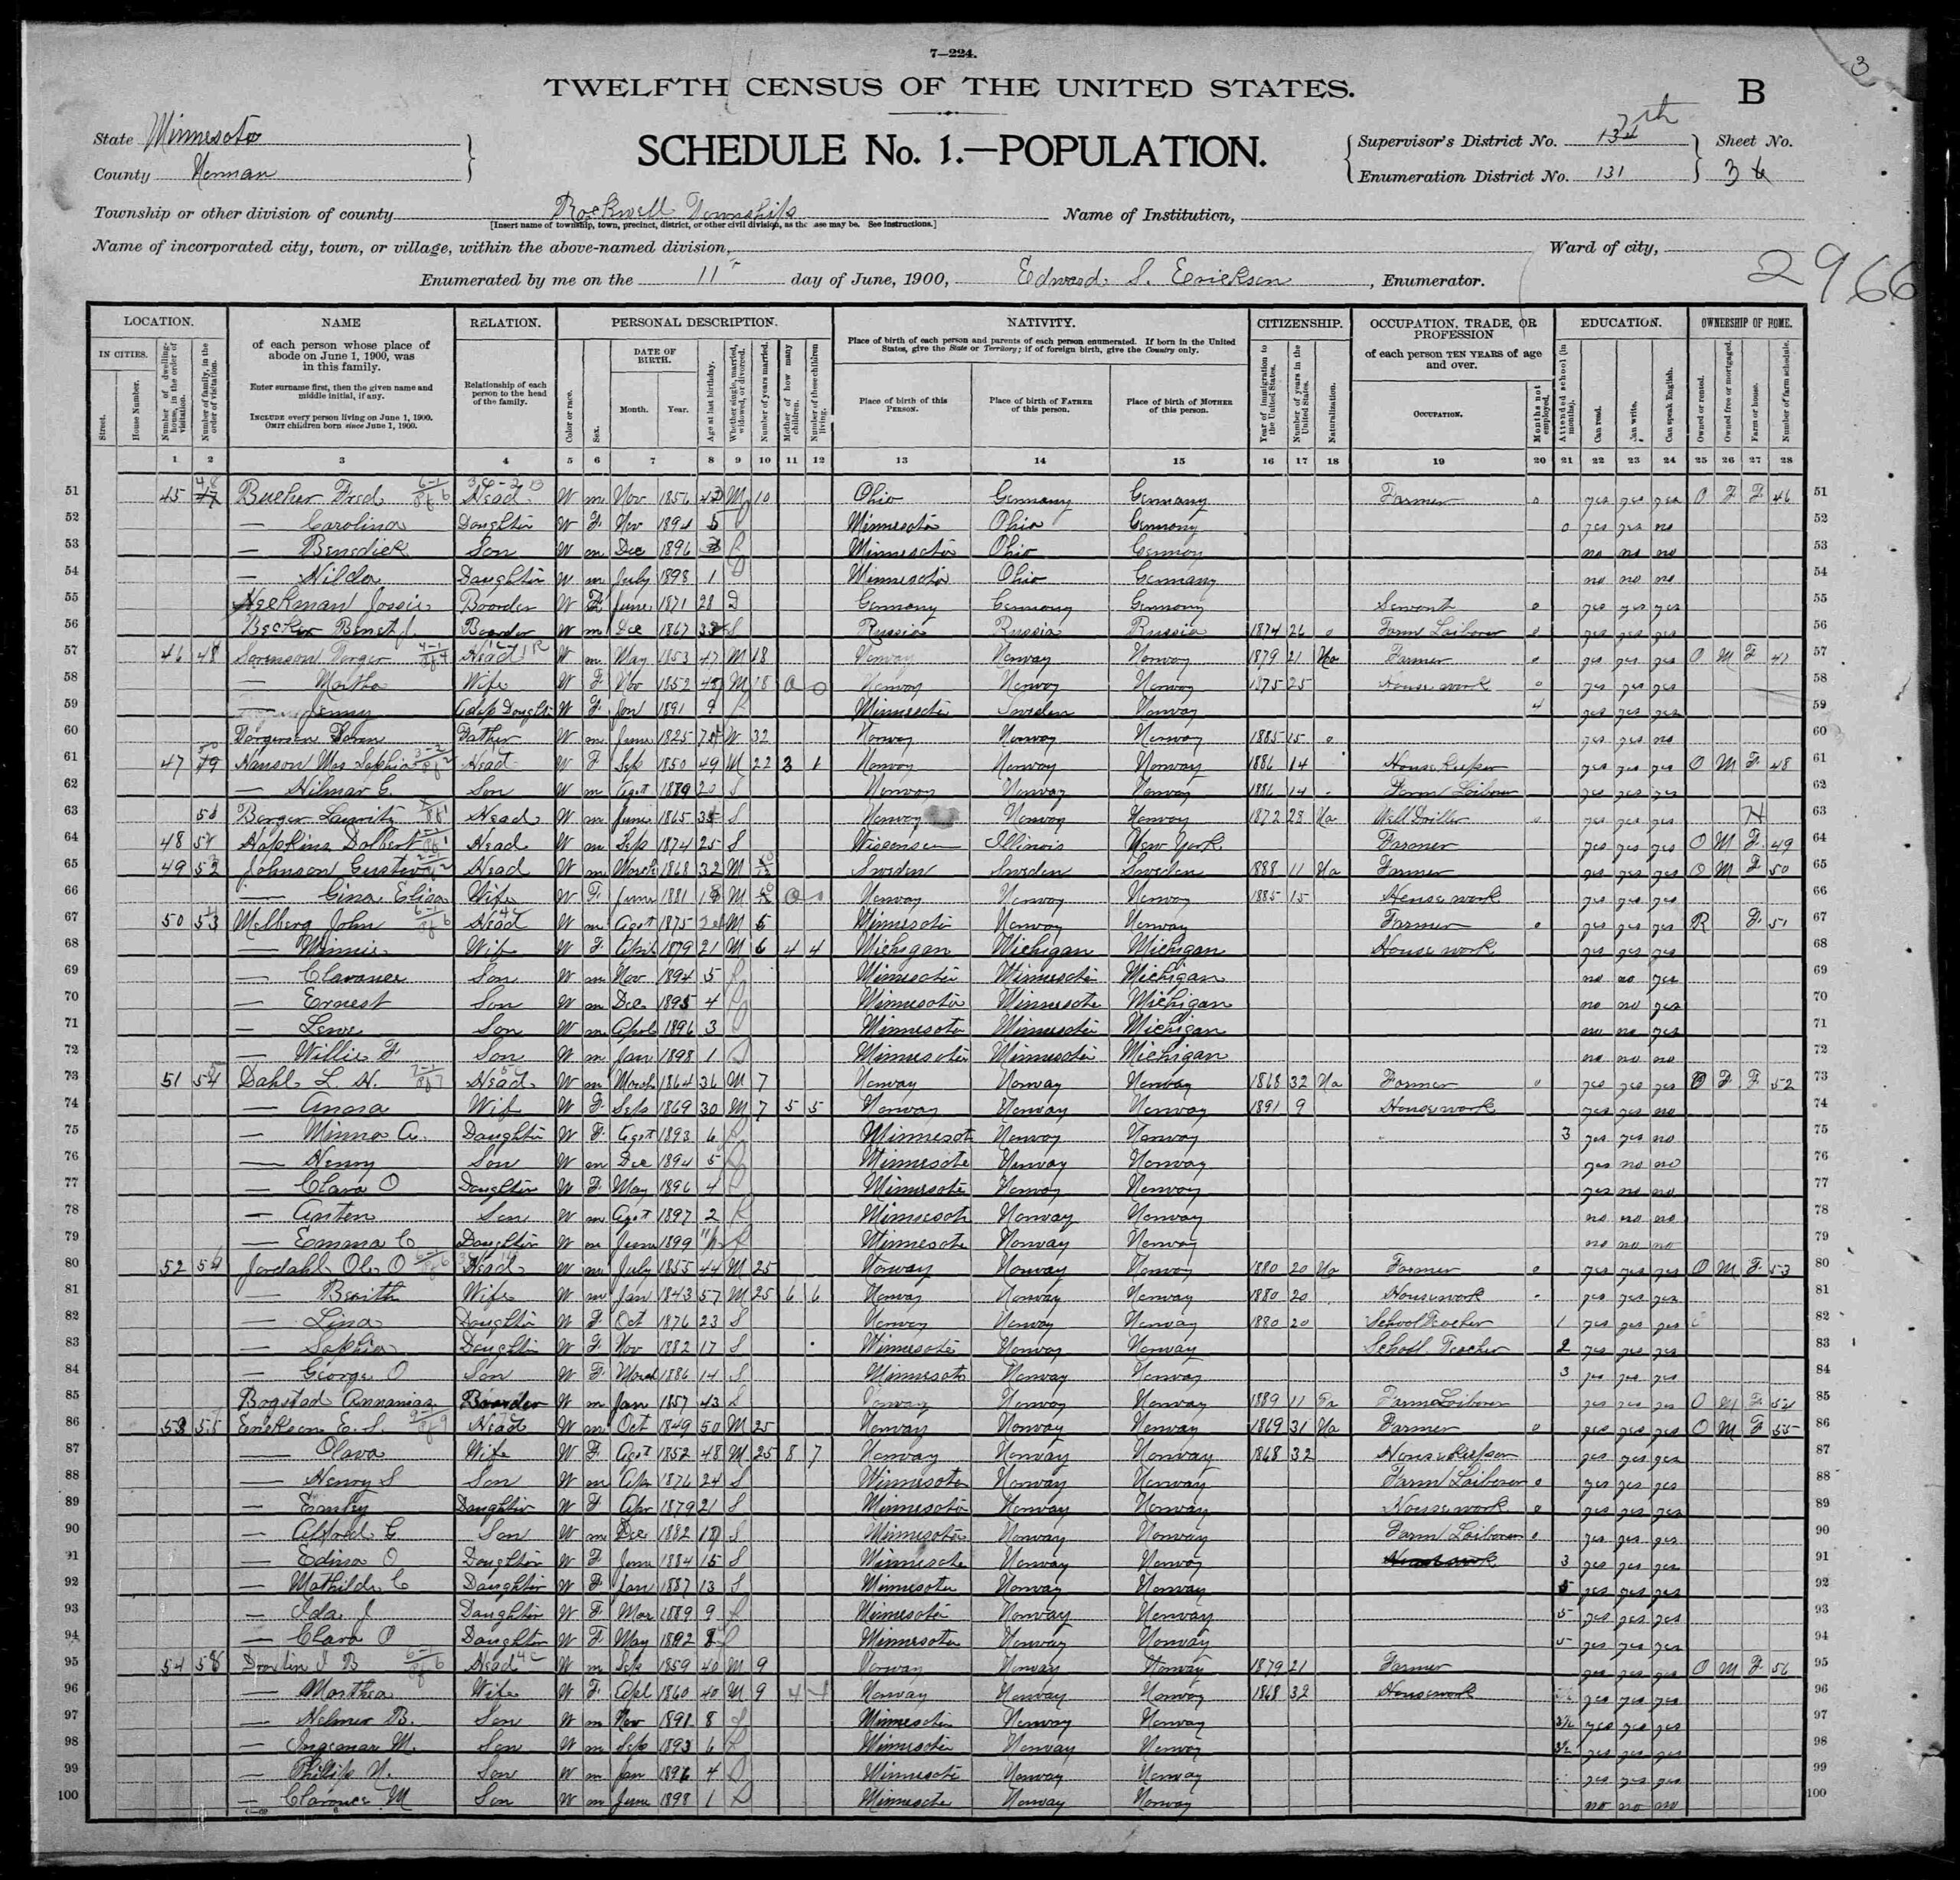 7—224.
3
TWELFTH CENSUS OF THE UNITED STATES.
B
State Minnesota
SCHEDULE No. 1.—POPULATION.
Supervisor's District No. 7th
Sheet No.
County Norman
Enumeration District No. 131
3
Township or other division of county Rockwell Township
Name of Institution,
[Insert name of township, town, precinct, district, or other civil division, as the case may be. See instructions.]
Name of incorporated city, town, or village, within the above-named division,
Ward of city,
2966
Enumerated by me on the 11 day of June, 1900, Edward S. Erickson, Enumerator.
LOCATION. NAME RELATION. PERSONAL DESCRIPTION. NATIVITY. CITIZENSHIP. OCCUPATION, TRADE, OR PROFESSION EDUCATION. OWNERSHIP OF HOME.
IN CITIES.
Street.
House Number.
Number of dwelling-house, in the order of visitation.
Number of family, in the order of visitation.
of each person whose place of abode on June 1, 1900, was in this family.
Enter surname first, then the given name and middle initial, if any.
INCLUDE every person living on June 1, 1900.
OMIT children born since June 1, 1900.
Relationship of each person to the head of the family.
Color or race.
Sex.
DATE OF BIRTH.
Month. Year.
Age at last birthday.
Whether single, married, widowed, or divorced.
Number of years married.
Mother of how many children.
Number of these children living.
Place of birth of each person and parents of each person enumerated. If born in the United States, give the State or Territory; if of foreign birth, give the Country only.
Place of birth of this PERSON.
Place of birth of FATHER of this person.
Place of birth of MOTHER of this person.
Year of immigration to the United States.
Number of years in the United States.
Naturalization.
of each person TEN YEARS of age and over.
OCCUPATION.
Months not employed.
Attended school (in months).
Can read.
Can write.
Can speak English.
Owned or rented.
Owned free or mortgaged.
Farm or house.
Number of farm schedule.
1 2 3 4 5 6 7 8 9 10 11 12 13 14 15 16 17 18 19 20 21 22 23 24 25 26 27 28
51 45 Fred Head W m Nov 1856 M 10 Ohio Germany Germany Farmer 0 yes yes yes O F F 46 51
52 — Carolina Daughter W F Nov 1894 5 Minnesota Ohio Germany 0 yes yes no 52
53 — Benedick Son W m Dec 1896 3 Minnesota Ohio Germany no no no 53
54 — Hilda Daughter W m July 1898 1 Minnesota Ohio Germany no no no 54
55 Heckman Jossie Boarder W F June 1871 28 D Germany Germany Germany Servant 0 yes yes yes 55
56 Becker Boarder W m Dec 1867 S Russia Russia Russia 1874 26 Farm Laiborer 0 yes yes yes 56
57 46 48 Sorenson Head W m May 1853 47 M 18 Norway Norway Norway 1879 21 Na Farmer 0 yes yes yes O M F 47 57
58 — Martha Wife W F Nov 1852 M 18 0 0 Norway Norway Norway 1875 25 House work 0 yes yes yes 58
59 Jenny Daughter W F Jan 1891 9 Minnesota Sweden Norway 4 yes yes yes 59
60 Father W m June 1825 W 32 Norway Norway Norway 1885 15 yes yes no 60
61 47 Hanson Mrs Sophia Head W F Sep 1850 49 M 22 3 1 Norway Norway Norway 1886 14 House Keeper yes yes yes O M F 48 61
62 — Hilmar G. Son W m Agst 20 S Norway Norway Norway 1886 14 Farm Laiborer yes yes yes 62
63 Berger Lauritz Head W m June 1865 S Norway Norway Norway 1872 28 Na Well Driller yes yes yes H 63
64 48 Hopkins Dolbert Head W m Sep 1874 25 S Wisconsin Illinois New York Farmer yes yes yes O M F 49 64
65 49 Johnson Gustav Head W m March 1868 32 M Sweden Sweden Sweden 1888 11 Na Farmer yes yes yes O M F 50 65
66 — Gina Elisa Wife W F June 1881 18 M 0 Norway Norway Norway 1885 15 House work yes yes yes 66
67 50 53 Melberg John Head W m Agst 1875 24 M 6 Minnesota Norway Norway Farmer 0 yes yes yes R F 51 67
68 — Minnie Wife W F April 1879 21 M 6 4 4 Michigan Michigan Michigan House work yes yes yes 68
69 — Claranes Son W m Nov 1894 5 Minnesota Minnesota Michigan no no yes 69
70 — Ernest Son W m Dec 1895 4 Minnesota Minnesota Michigan no no yes 70
71 — Son W m April 1896 3 Minnesota Minnesota Michigan no no yes 71
72 — Willie F. Son W m Jan 1898 1 Minnesota Minnesota Michigan no no no 72
73 51 54 Dahl L. H. Head W m March 1864 36 M 7 Norway Norway Norway 1868 32 Na Farmer 0 yes yes yes O F F 52 73
74 — Anna Wife W F Sep 1869 30 M 7 5 5 Norway Norway Norway 1891 9 House work yes yes no 74
75 — Minna A. Daughter W F Agst 1893 6 Minnesota Norway Norway 3 yes yes no 75
76 — Henry Son W m Dec 1894 5 Minnesota Norway Norway yes no no 76
77 — Clara O Daughter W F May 1896 4 Minnesota Norway Norway yes no no 77
78 — Anten Son W m Agst 1897 2 Minnesota Norway Norway no no no 78
79 — Emma C Daughter W m June 1899 11/12 Minnesota Norway Norway no no no 79
80 52 Jordahl Ole O Head W m July 1855 44 M 25 Norway Norway Norway 1880 20 Na Farmer 0 yes yes yes O M F 53 80
81 — Berith Wife W m Jan 1843 57 M 25 6 6 Norway Norway Norway 1880 20 House work yes yes yes 81
82 — Lina Daughter W F Oct 1876 23 S Norway Norway Norway 1880 20 School Teacher 1 yes yes yes 82
83 — Sophia Daughter W F Nov 1882 17 S Minnesota Norway Norway School Teacher 2 yes yes yes 83
84 — George O Son W F March 1886 14 S Minnesota Norway Norway 3 yes yes yes 84
85 Bogstad Annanias Boarder W m Jan 1857 43 S Norway Norway Norway 1889 11 Pa Farm Laiborer yes yes yes O M F 54 85
86 53 55 Erickson E. S. Head W m Oct 1849 50 M 25 Norway Norway Norway 1869 31 Na Farmer 0 yes yes yes O M F 55 86
87 — Olava Wife W F Agst 1852 48 M 25 8 7 Norway Norway Norway 1868 32 House Keeper yes yes yes 87
88 — Henry S Son W m Apr 1876 24 S Minnesota Norway Norway Farm Laiborer 0 yes yes yes 88
89 — Daughter W F Apr 1879 21 S Minnesota Norway Norway House work 0 yes yes yes 89
90 — Alfred G Son W m Dec 1882 17 S Minnesota Norway Norway Farm Laiborer 0 yes yes yes 90
91 — Edina O Daughter W F June 1884 15 S Minnesota Norway Norway 3 yes yes yes 91
92 — Mathilde C Daughter W F Jan 1887 13 S Minnesota Norway Norway 5 yes yes yes 92
93 — Ida J Daughter W F Mar 1889 9 Minnesota Norway Norway 5 yes yes yes 93
94 — Clara O Daughter W F May 1892 8 Minnesota Norway Norway 5 yes yes yes 94
95 54 58 J B Head W m Sep 1859 40 M 9 Norway Norway Norway 1879 21 Farmer yes yes yes O M F 56 95
96 — Marthea Wife W F Apl 1860 40 M 9 4 4 Norway Norway Norway 1868 32 House work yes yes yes 96
97 — Helmer B. Son W m Nov 1891 8 Minnesota Norway Norway 3½ yes yes yes 97
98 — Ingeman M. Son W m Sep 1893 6 Minnesota Norway Norway 3½ yes yes yes 98
99 — Phillip N. Son W m Jan 1896 4 Minnesota Norway Norway yes yes yes 99
100 — Clarence M Son W m June 1898 1 Minnesota Norway Norway no no no 100